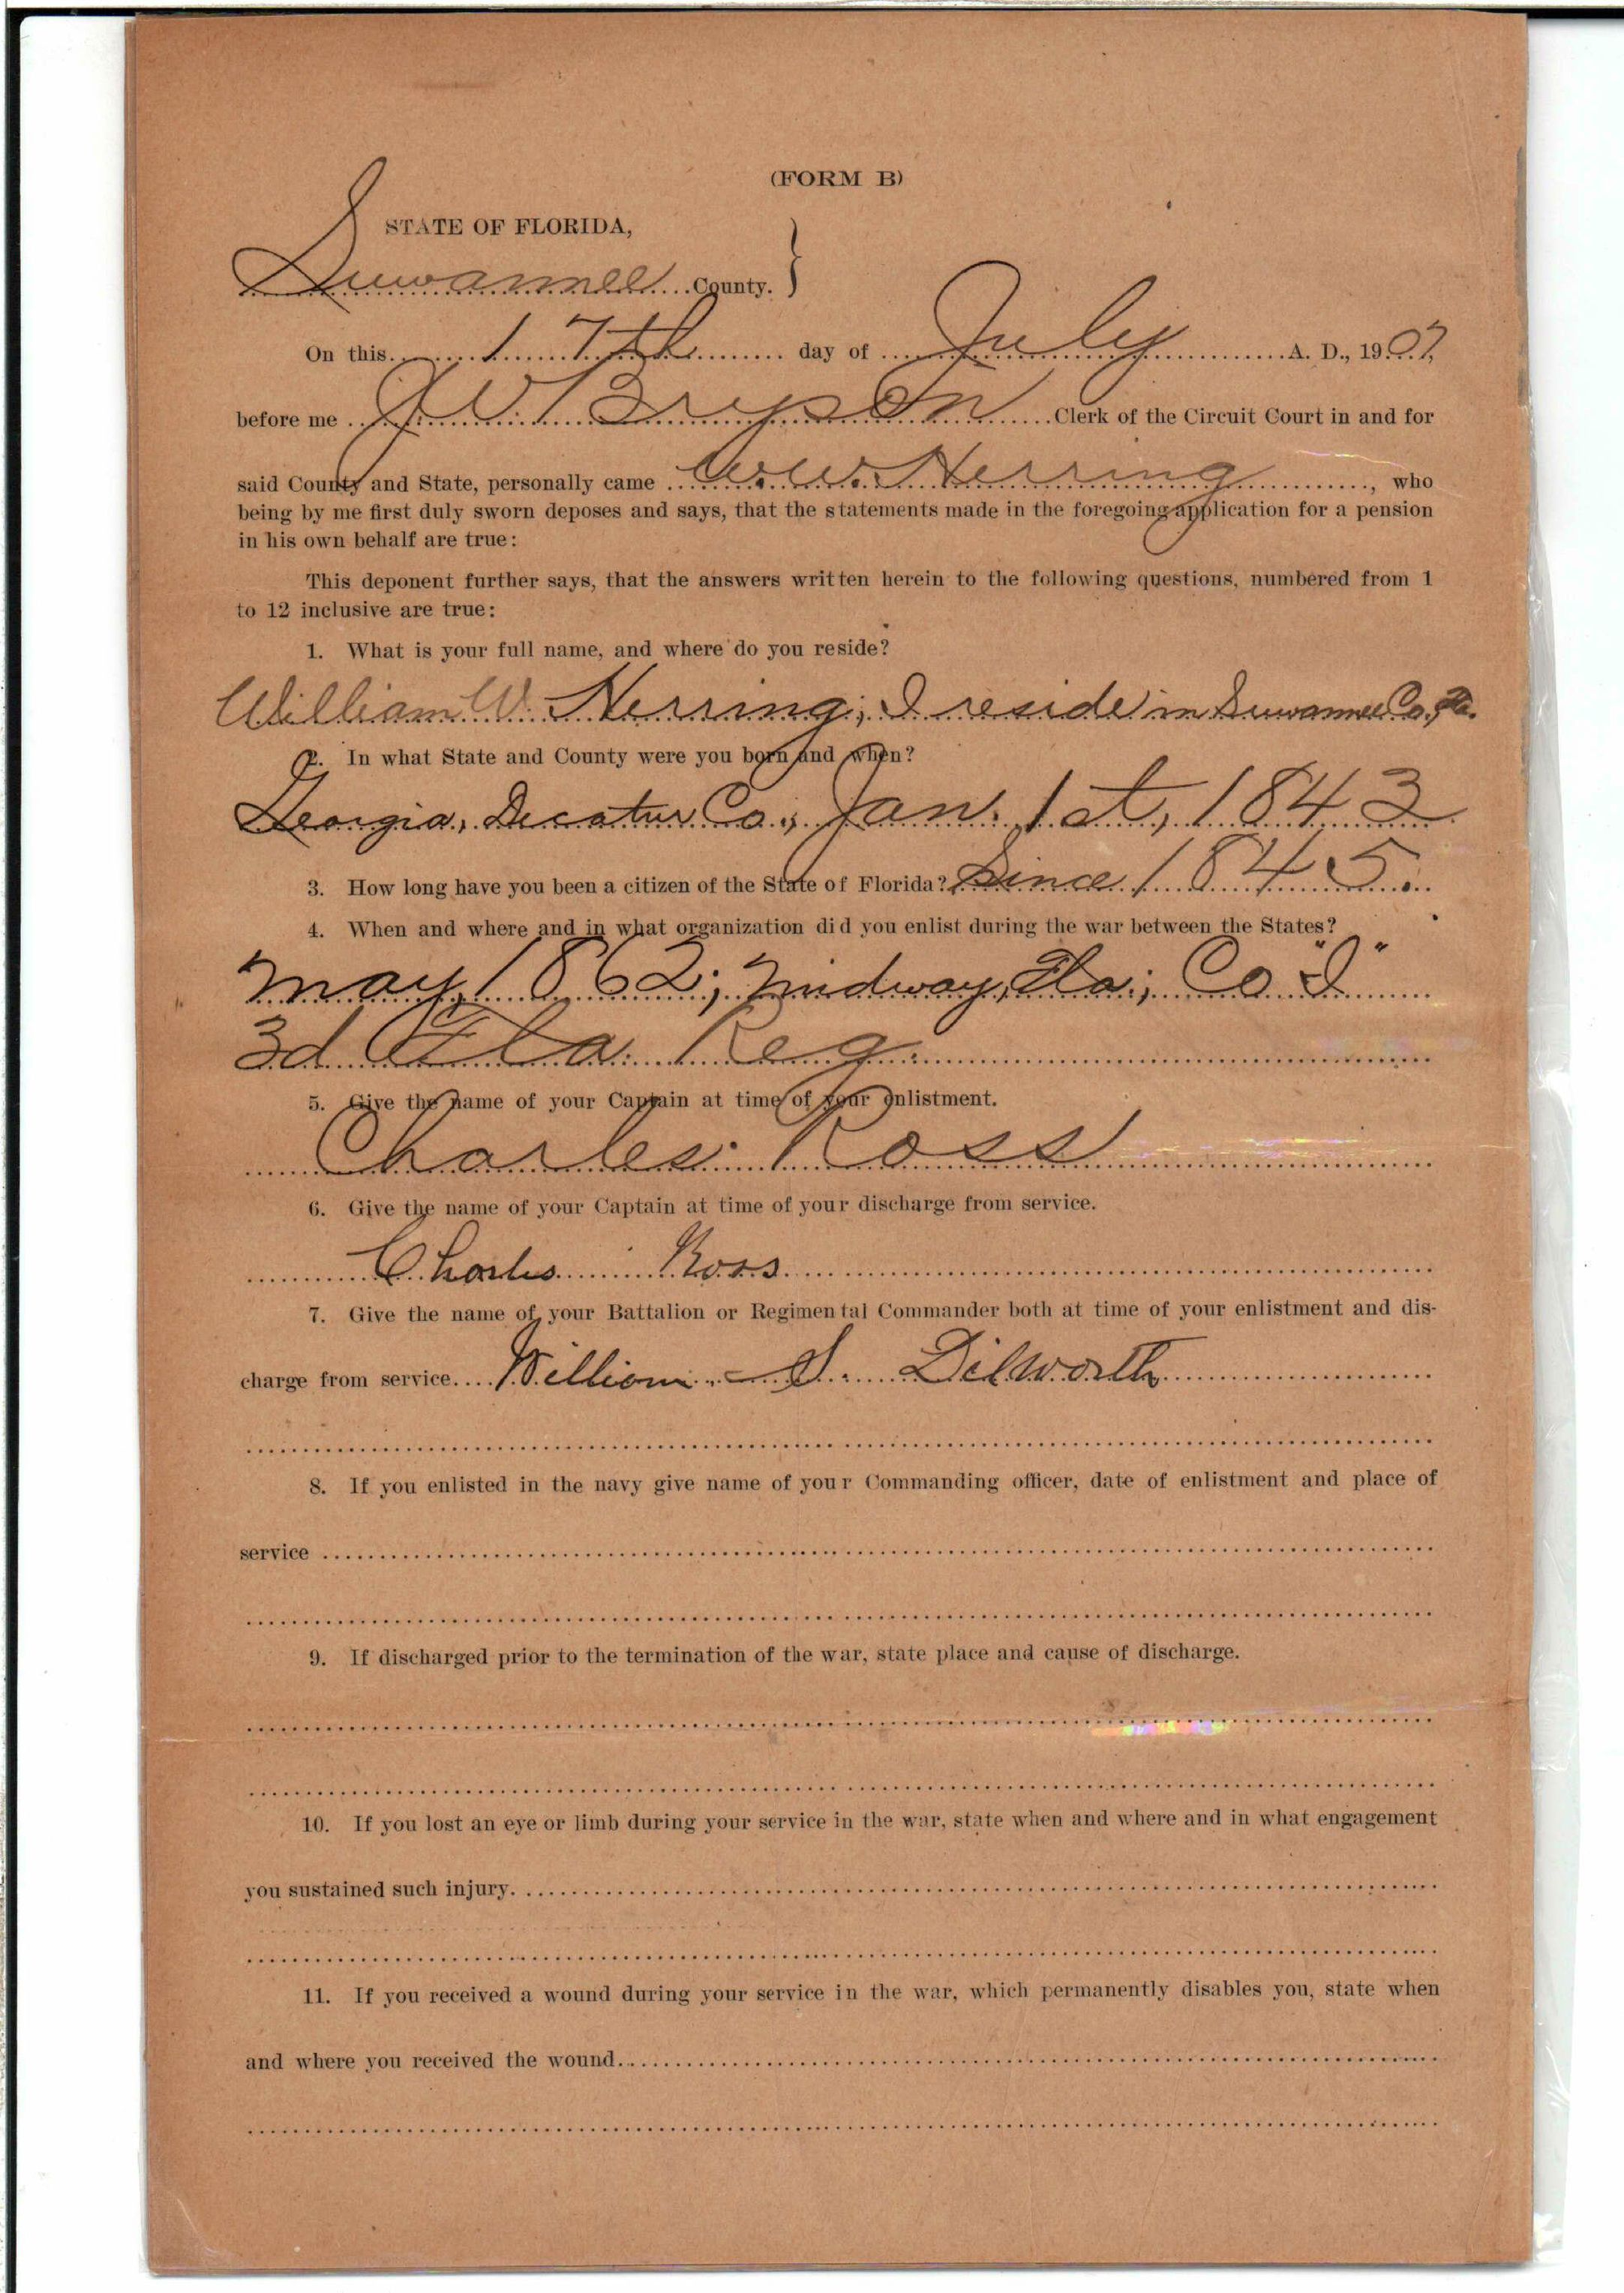 (FORM B)
STATE OF FLORIDA,
Suwannee County.
On this 17th day of July A. D., 1907,
before me J. W. Bryson Clerk of the Circuit Court in and for
said County and State, personally came W. W. Herring, who
being by me first duly sworn deposes and says, that the statements made in the foregoing application for a pension
in his own behalf are true:
This deponent further says, that the answers written herein to the following questions, numbered from 1
to 12 inclusive are true:
1. What is your full name, and where do you reside?
William W. Herring; I reside in Suwannee Co., Fla.
2. In what State and County were you born and when?
Georgia, Decatur Co., Jan. 1st, 1843.
3. How long have you been a citizen of the State of Florida? Since 1845.
4. When and where and in what organization did you enlist during the war between the States?
May, 1862; Midway, Fla.; Co "I"
3d Fla. Reg.
5. Give the name of your Captain at time of your enlistment.
Charles Ross
6. Give the name of your Captain at time of your discharge from service.
Charles Ross
7. Give the name of your Battalion or Regimental Commander both at time of your enlistment and dis-
charge from service William S. Dilworth
8. If you enlisted in the navy give name of your Commanding officer, date of enlistment and place of
service
9. If discharged prior to the termination of the war, state place and cause of discharge.
10. If you lost an eye or limb during your service in the war, state when and where and in what engagement
you sustained such injury.
11. If you received a wound during your service in the war, which permanently disables you, state when
and where you received the wound